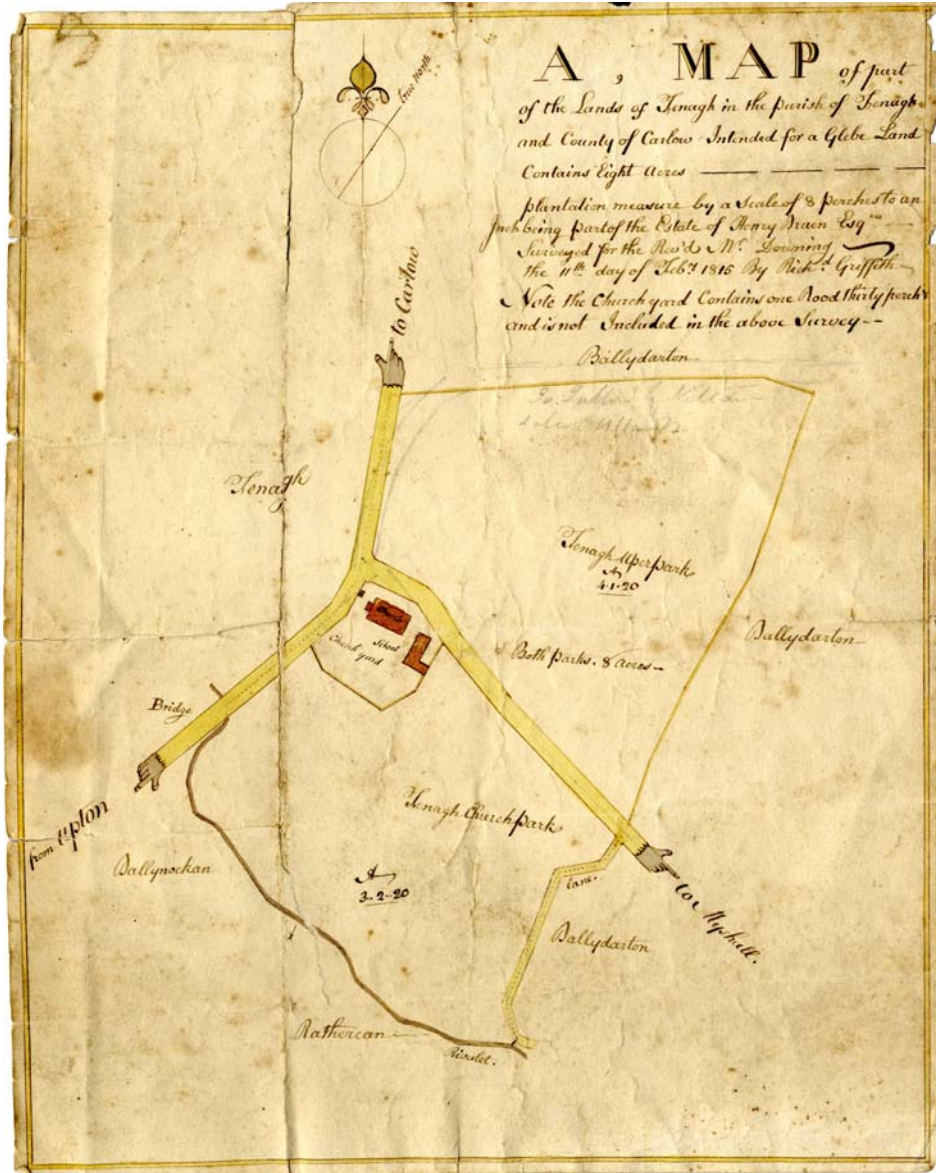 true North
A, MAP of part
of the Lands of Fenagh in the parish of Fenagh
and County of Carlow Intended for a Glebe Land
Contains Eight Acres
plantation measure by a Scale of 8 perches to an
Inch being part of the Estate of Henry Bruen Esqre
Surveyed for the Rev'd Mr. Downing
the 11th day of Feby 1815 By Richd. Griffith
Note the Church yard Contains one Rood thirty perchs
and is not Included in the above Survey--
to Carlow
Ballydarton
Fenagh
Fenagh Uperpark
A
4.1.20
Ballydarton
Church
School
Church yard
Both parks. 8 Acres
Bridge
from Upton
Fenagh Church park
Ballynockan
A
3.2.20
lane.
to Myshall.
Ballydarton
Rathercan
Rivulet.